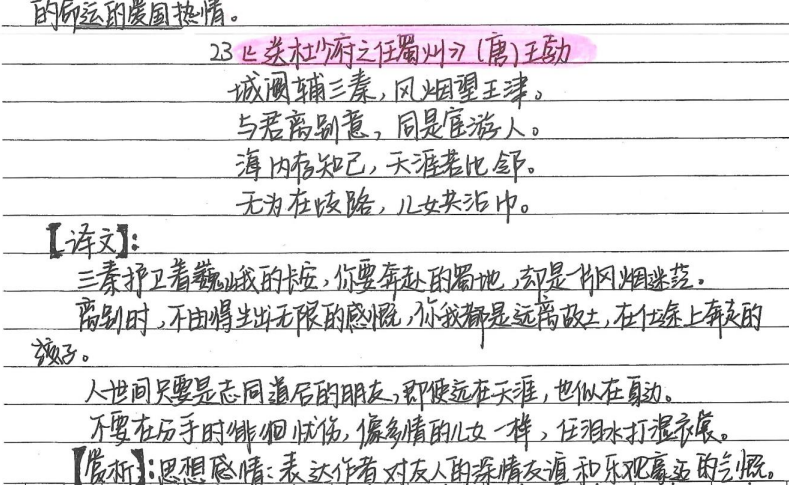 的命运的爱国热情。
23《送杜少府之任蜀州》(唐)王勃
城阙辅三秦,风烟望五津。
与君离别意,同是宦游人。
海内存知己,天涯若比邻。
无为在歧路,儿女共沾巾。
【译文】:
三秦护卫着巍峨的长安,你要奔赴的蜀地,却是一片风烟迷茫。
离别时,不由得生出无限的感慨,你我都是远离故土,在仕途上奔走的
孩子。
人世间只要是志同道合的朋友,即使远在天涯,也似在身边。
不要在分手时徘徊忧伤,像多情的儿女一样,任泪水打湿衣裳。
【赏析】:思想感情:表达作者对友人的深情友谊和乐观豪迈的气慨。